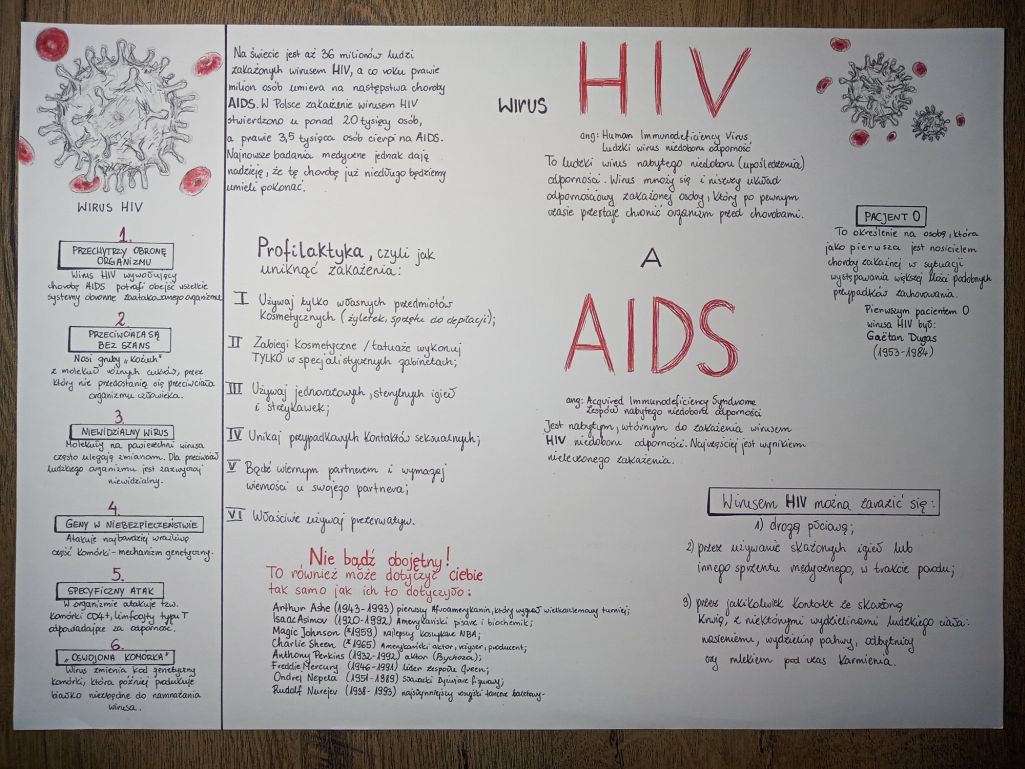 WIRUS HIV
1.
PRZECHYTRZY OBRONĘ
ORGANIZMU
Wirus HIV wywołujący
chorobę AIDS potrafi obejść wszelkie
systemy obronne zaatakowanego organizmu
2.
PRZECIWCIAŁA SĄ
BEZ SZANS
Nosi gruby „kożuch"
z molekuł różnych cukrów, przez
który nie przedostaną się przeciwciała
organizmu człowieka.
3.
NIEWIDZIALNY WIRUS
Molekuły na powierzchni wirusa
często ulegają zmianom. Dla przeciwciał
ludzkiego organizmu jest zazwyczaj
niewidzialny.
4.
GENY W NIEBEZPIECZEŃSTWIE
Atakuje najbardziej wrażliwą
część komórki - mechanizm genetyczny.
5.
SPECYFICZNY ATAK
W organizmie atakuje tzw.
komórki CD4+, limfocyty typu T
odpowiadające za odporność.
6.
„OSWOJONA KOMÓRKA"
Wirus zmienia kod genetyczny
komórki, która później produkuje
białko niezbędne do namnażania
wirusa.
Na świecie jest aż 36 milionów ludzi
zakażonych wirusem HIV, a co roku prawie
milion osób umiera na następstwa choroby
AIDS. W Polsce zakażenie wirusem HIV
stwierdzono u ponad 20 tysięcy osób,
a prawie 3,5 tysiąca osób cierpi na AIDS.
Najnowsze badania medyczne jednak dają
nadzieję, że tę chorobę już niedługo będziemy
umieli pokonać.
Profilaktyka, czyli jak
uniknąć zakażenia:
I Używaj tylko własnych przedmiotów
kosmetycznych (żyletek, sprzętu do depilacji);
II Zabiegi kosmetyczne / tatuaże wykonuj
TYLKO w specjalistycznych gabinetach;
III Używaj jednorazowych, sterylnych igieł
i strzykawek;
IV Unikaj przypadkowych kontaktów seksualnych;
V Bądź wiernym partnerem i wymagaj
wierności u swojego partnera;
VI Właściwie używaj prezerwatyw.
Nie bądź obojętny!
To również może dotyczyć ciebie
tak samo jak ich to dotyczyło:
Arthur Ashe (1943-1993) pierwszy Afroamerykanin, który wygrał wielkoszlemowy turniej;
Isaac Asimov (1920-1992) Amerykański pisarz i biochemik;
Magic Johnson (*1959) najlepszy koszykarz NBA;
Charlie Sheen (*1965) Amerykański aktor, reżyser, producent;
Anthony Perkins (1932-1992) aktor (Psychoza);
Freddie Mercury (1946-1991) lider zespołu Queen;
Ondrej Nepela (1951-1989) słowacki łyżwiarz figurowy;
Rudolf Nurejev (1938-1993) najsłynniejszy rosyjski tancerz baletowy.
WIRUS HIV
ang: Human Immunodeficiency Virus
Ludzki wirus niedoboru odporność
To ludzki wirus nabytego niedoboru (upośledzenia)
odporności. Wirus mnoży się i niszczy układ
odpornościowy zakażonej osoby, który po pewnym
czasie przestaje chronić organizm przed chorobami.
A
AIDS
ang: Acquired Immunodeficiency Syndrome
Zespół nabytego niedoboru odporności
Jest nabytym, wtórnym do zakażenia wirusem
HIV niedoborem odporności. Najczęściej jest wynikiem
nieleczonego zakażenia.
PACJENT 0
To określenie na osobę, która
jako pierwsza jest nosicielem
choroby zakaźnej w sytuacji
występowania większej ilości podobnych
przypadków zachorowania.
Pierwszym pacjentem 0
wirusa HIV był:
Gaëtan Dugas
(1953-1984)
Wirusem HIV można zarazić się:
1) drogą płciową;
2) przez używanie skażonych igieł lub
innego sprzętu medycznego, w trakcie porodu;
3) przez jakikolwiek kontakt ze skażoną
krwią, z niektórymi wydzielinami ludzkiego ciała:
nasieniem, wydzieliną pochwy, odbytnicy
czy mlekiem pod czas karmienia.